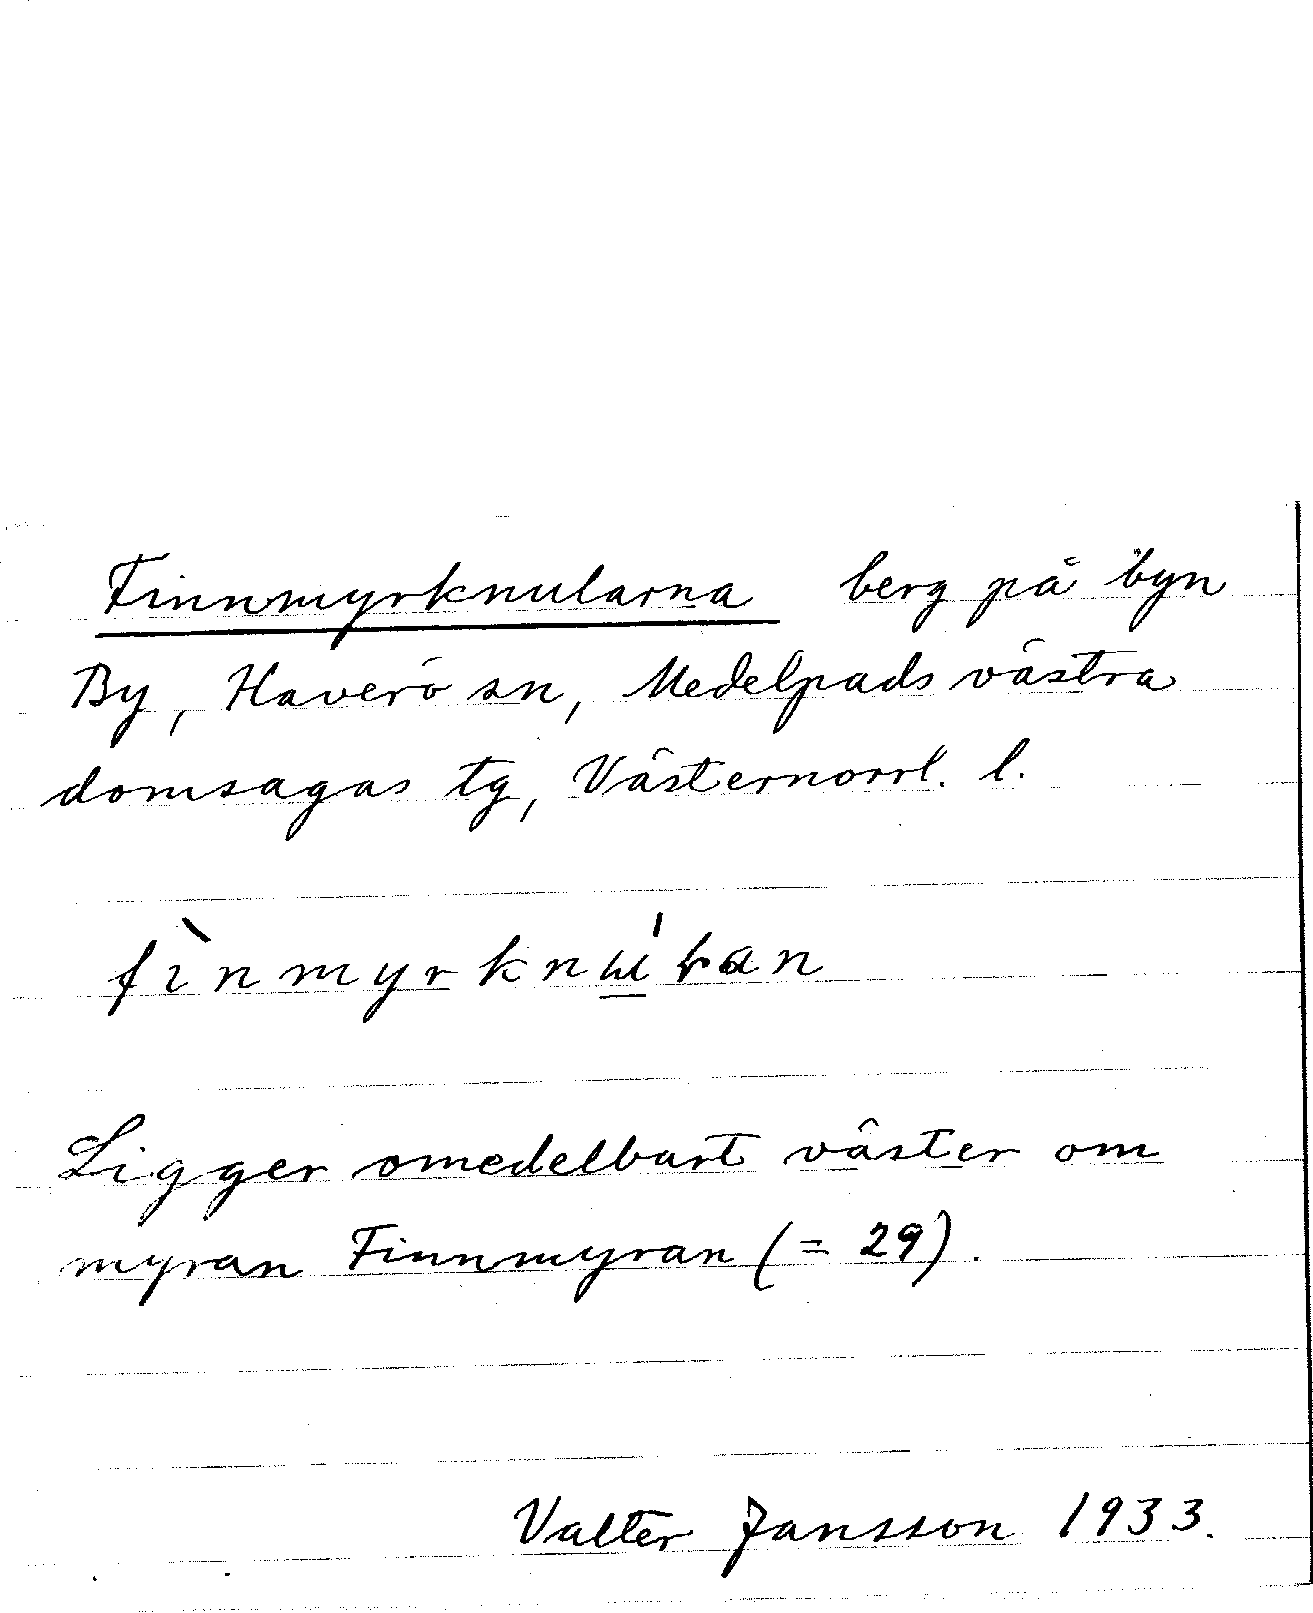 Finnmyrknularna berg på byn
By, Haverö sn, Medelpads västra
domsagas tg, Västernorrl. l.
Ligger omedelbart väster om
myran Finnmyran (= 29).
Valter Jansson 1933.